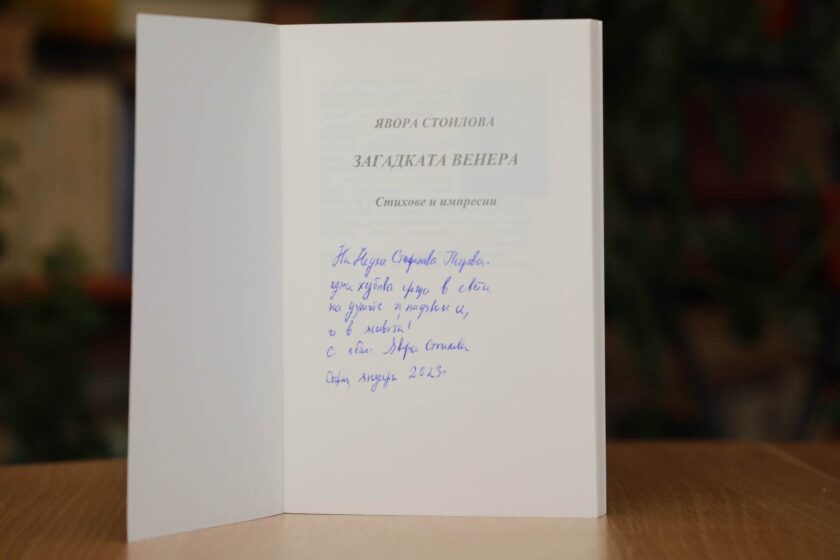 ЯВОРА СТОИЛОВА
ЗАГАДКАТА ВЕНЕРА
Стихове и импресии
На Недка Стефанова Петрова -
една хубава среща в света
на думите и
и в живота!
С обич: Явора Стоилова
София, януари 2023 г.